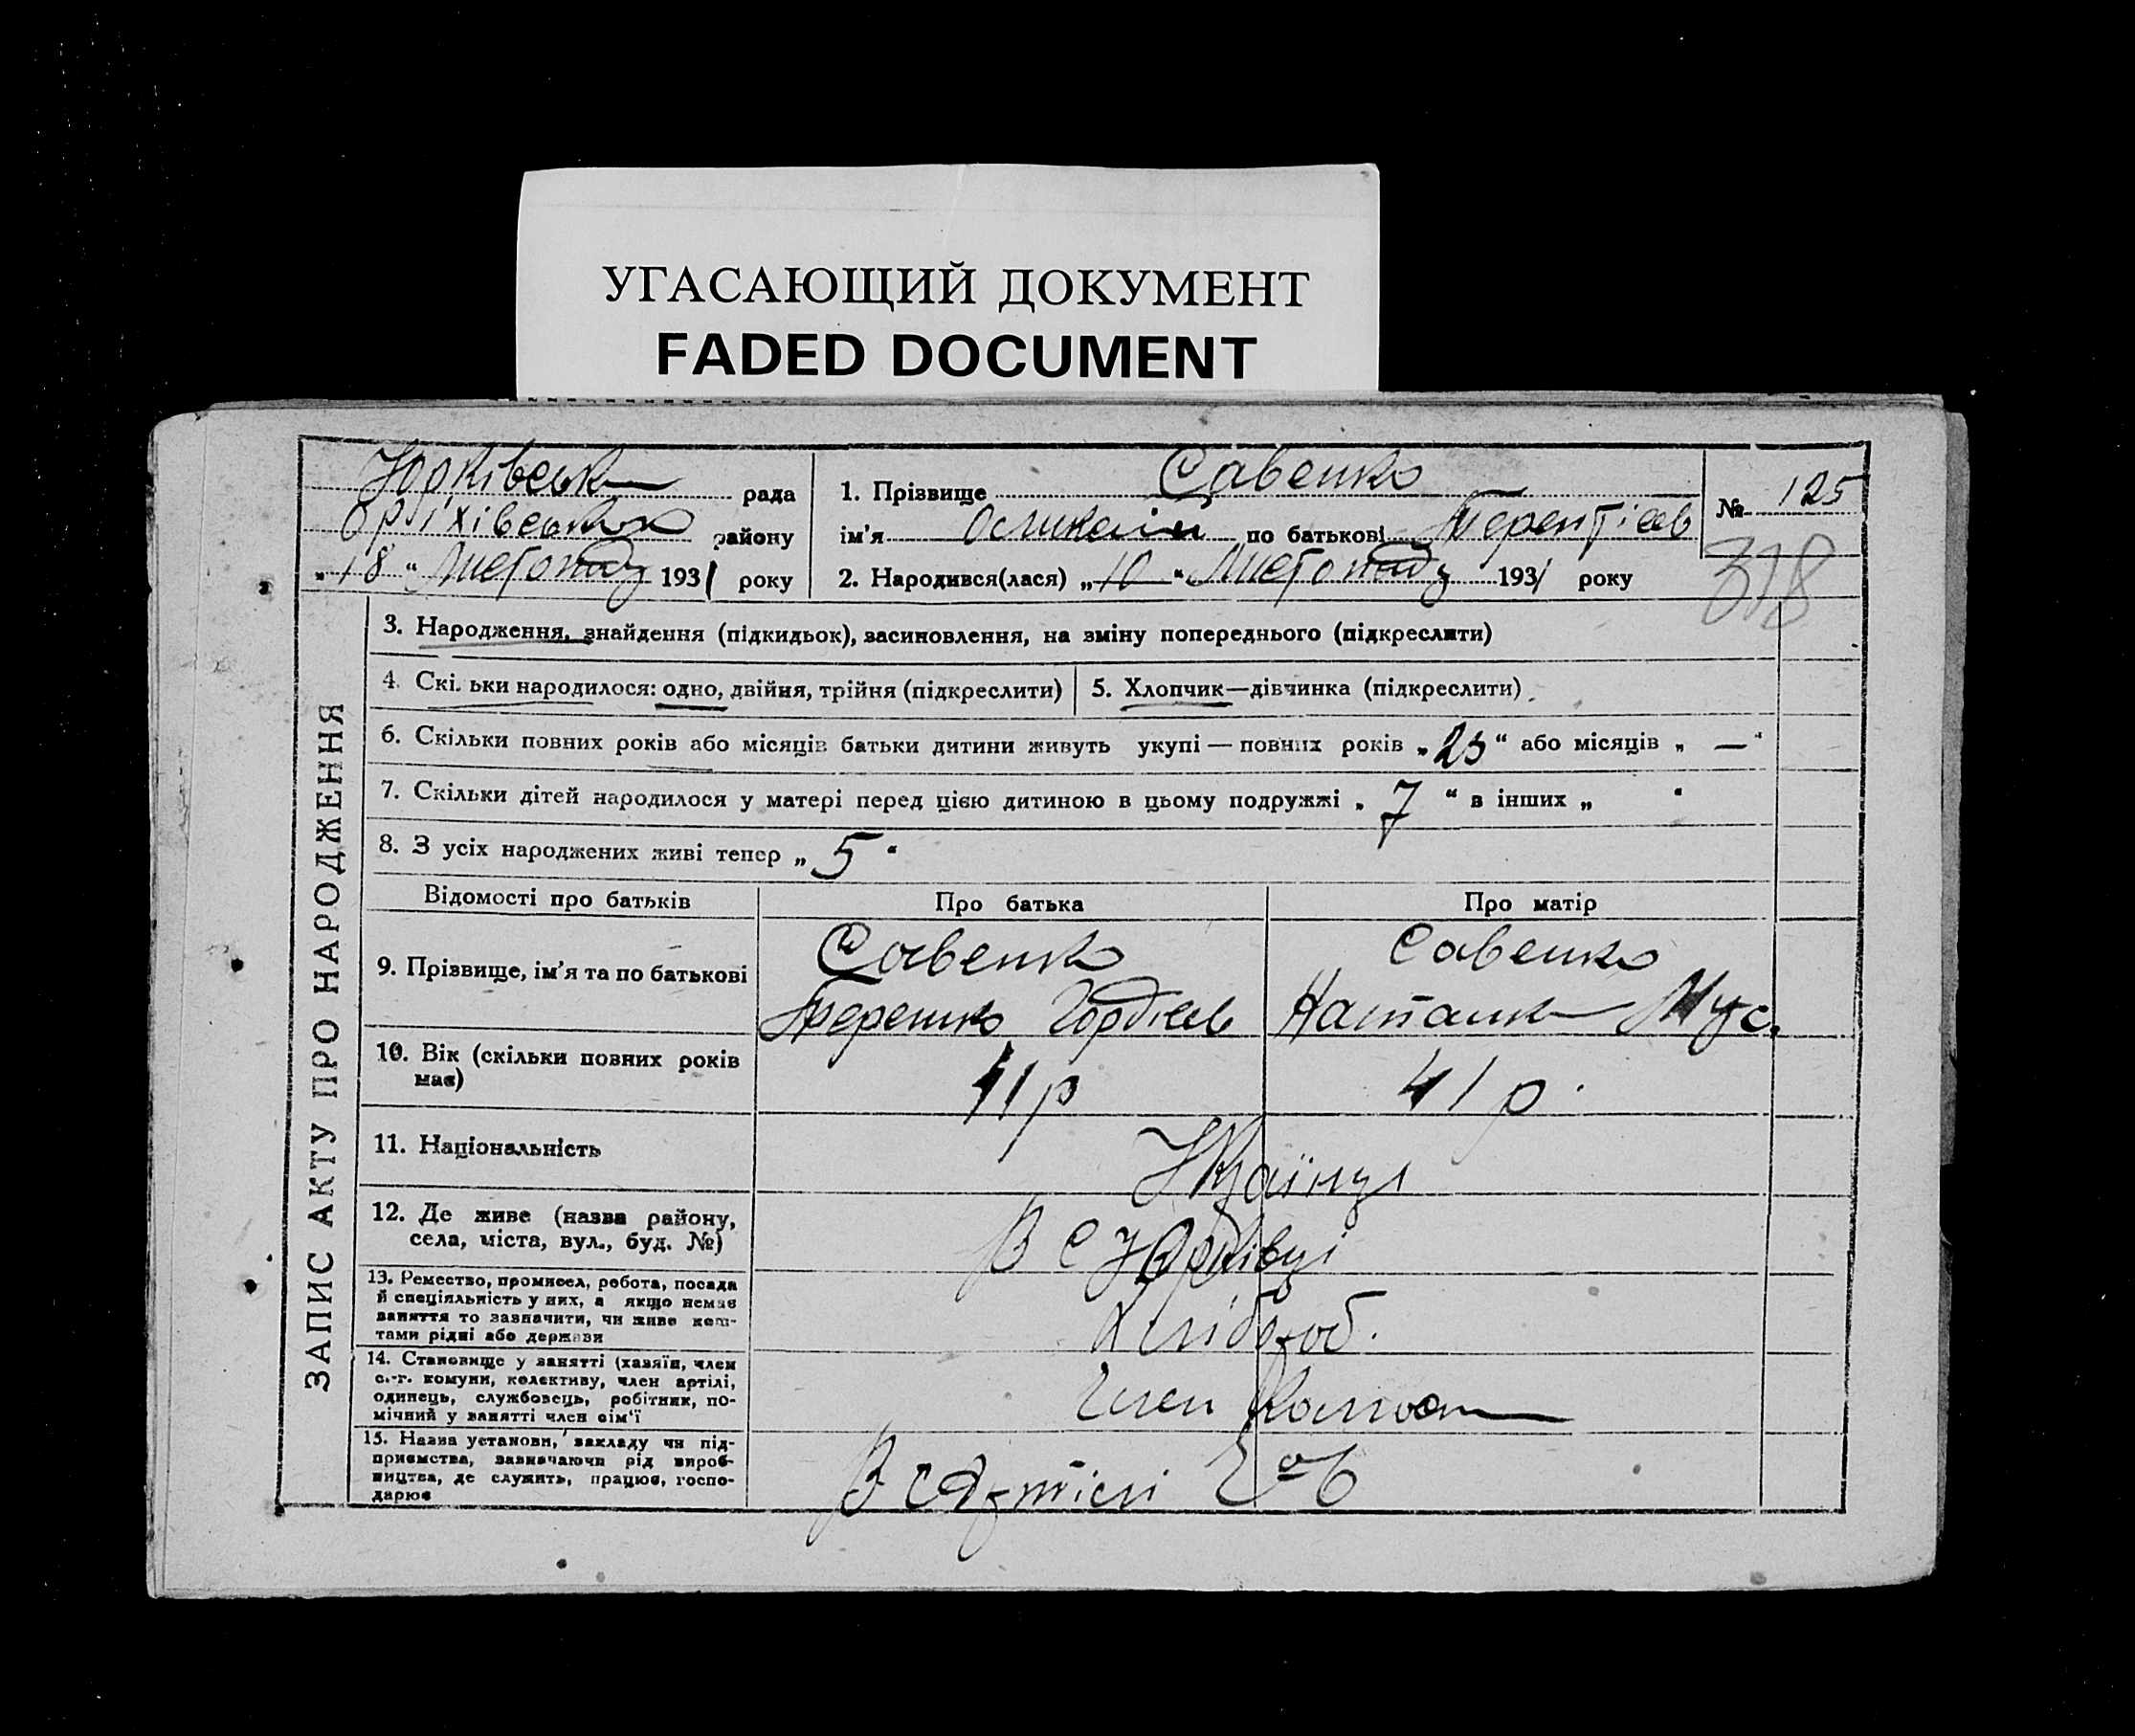 УГАСАЮЩИЙ ДОКУМЕНТ
FADED DOCUMENT
Юрківськ рада
Оріхівськ району
„18“ Листопаду 1931 року
1. Прізвище Савенко
ім'я по батькові Терентіев
2. Народився(лася) „10“ Листопаду 1931 року
№ 125
318
ЗАПИС АКТУ ПРО НАРОДЖЕННЯ
3. Народження, знайдення (підкидьок), засиновлення, на зміну попереднього (підкреслити)
4. Скільки народилося: одно, двійня, трійня (підкреслити)
5. Хлопчик—дівчинка (підкреслити)
6. Скільки повних років або місяців батьки дитини живуть укупі — повних років „23“ або місяців „—“
7. Скільки дітей народилося у матері перед цією дитиною в цьому подружжі „7“ в інших „ “
8. З усіх народжених живі тепер „5“
Відомості про батьків
Про батька
Про матір
9. Прізвище, ім'я та по батькові
Савенко
Терешко Гордіев
Савенко
Наталк Мус.
10. Вік (скільки повних років
має)
41 р
41 р.
11. Національність
Українці
12. Де живе (назва району,
села, міста, вул., буд. №)
В с Юрківці
13. Ремество, промисел, робота, посада
й спеціяльність у них, а якщо немає
заняття то зазначити, чи живе кош-
тами рідні або держави
Хлібороб.
14. Становище у занятті (хазяїн, член
с.-г. комуни, колективу, член артілі,
одинець, службовець, робітник, по-
мічний у занятті член сім'ї
Член
15. Назва установи, закладу чи під-
приємства, зазначаючи рід вироб-
ництва, де служить, працює, госпо-
дарює
В с Артілі